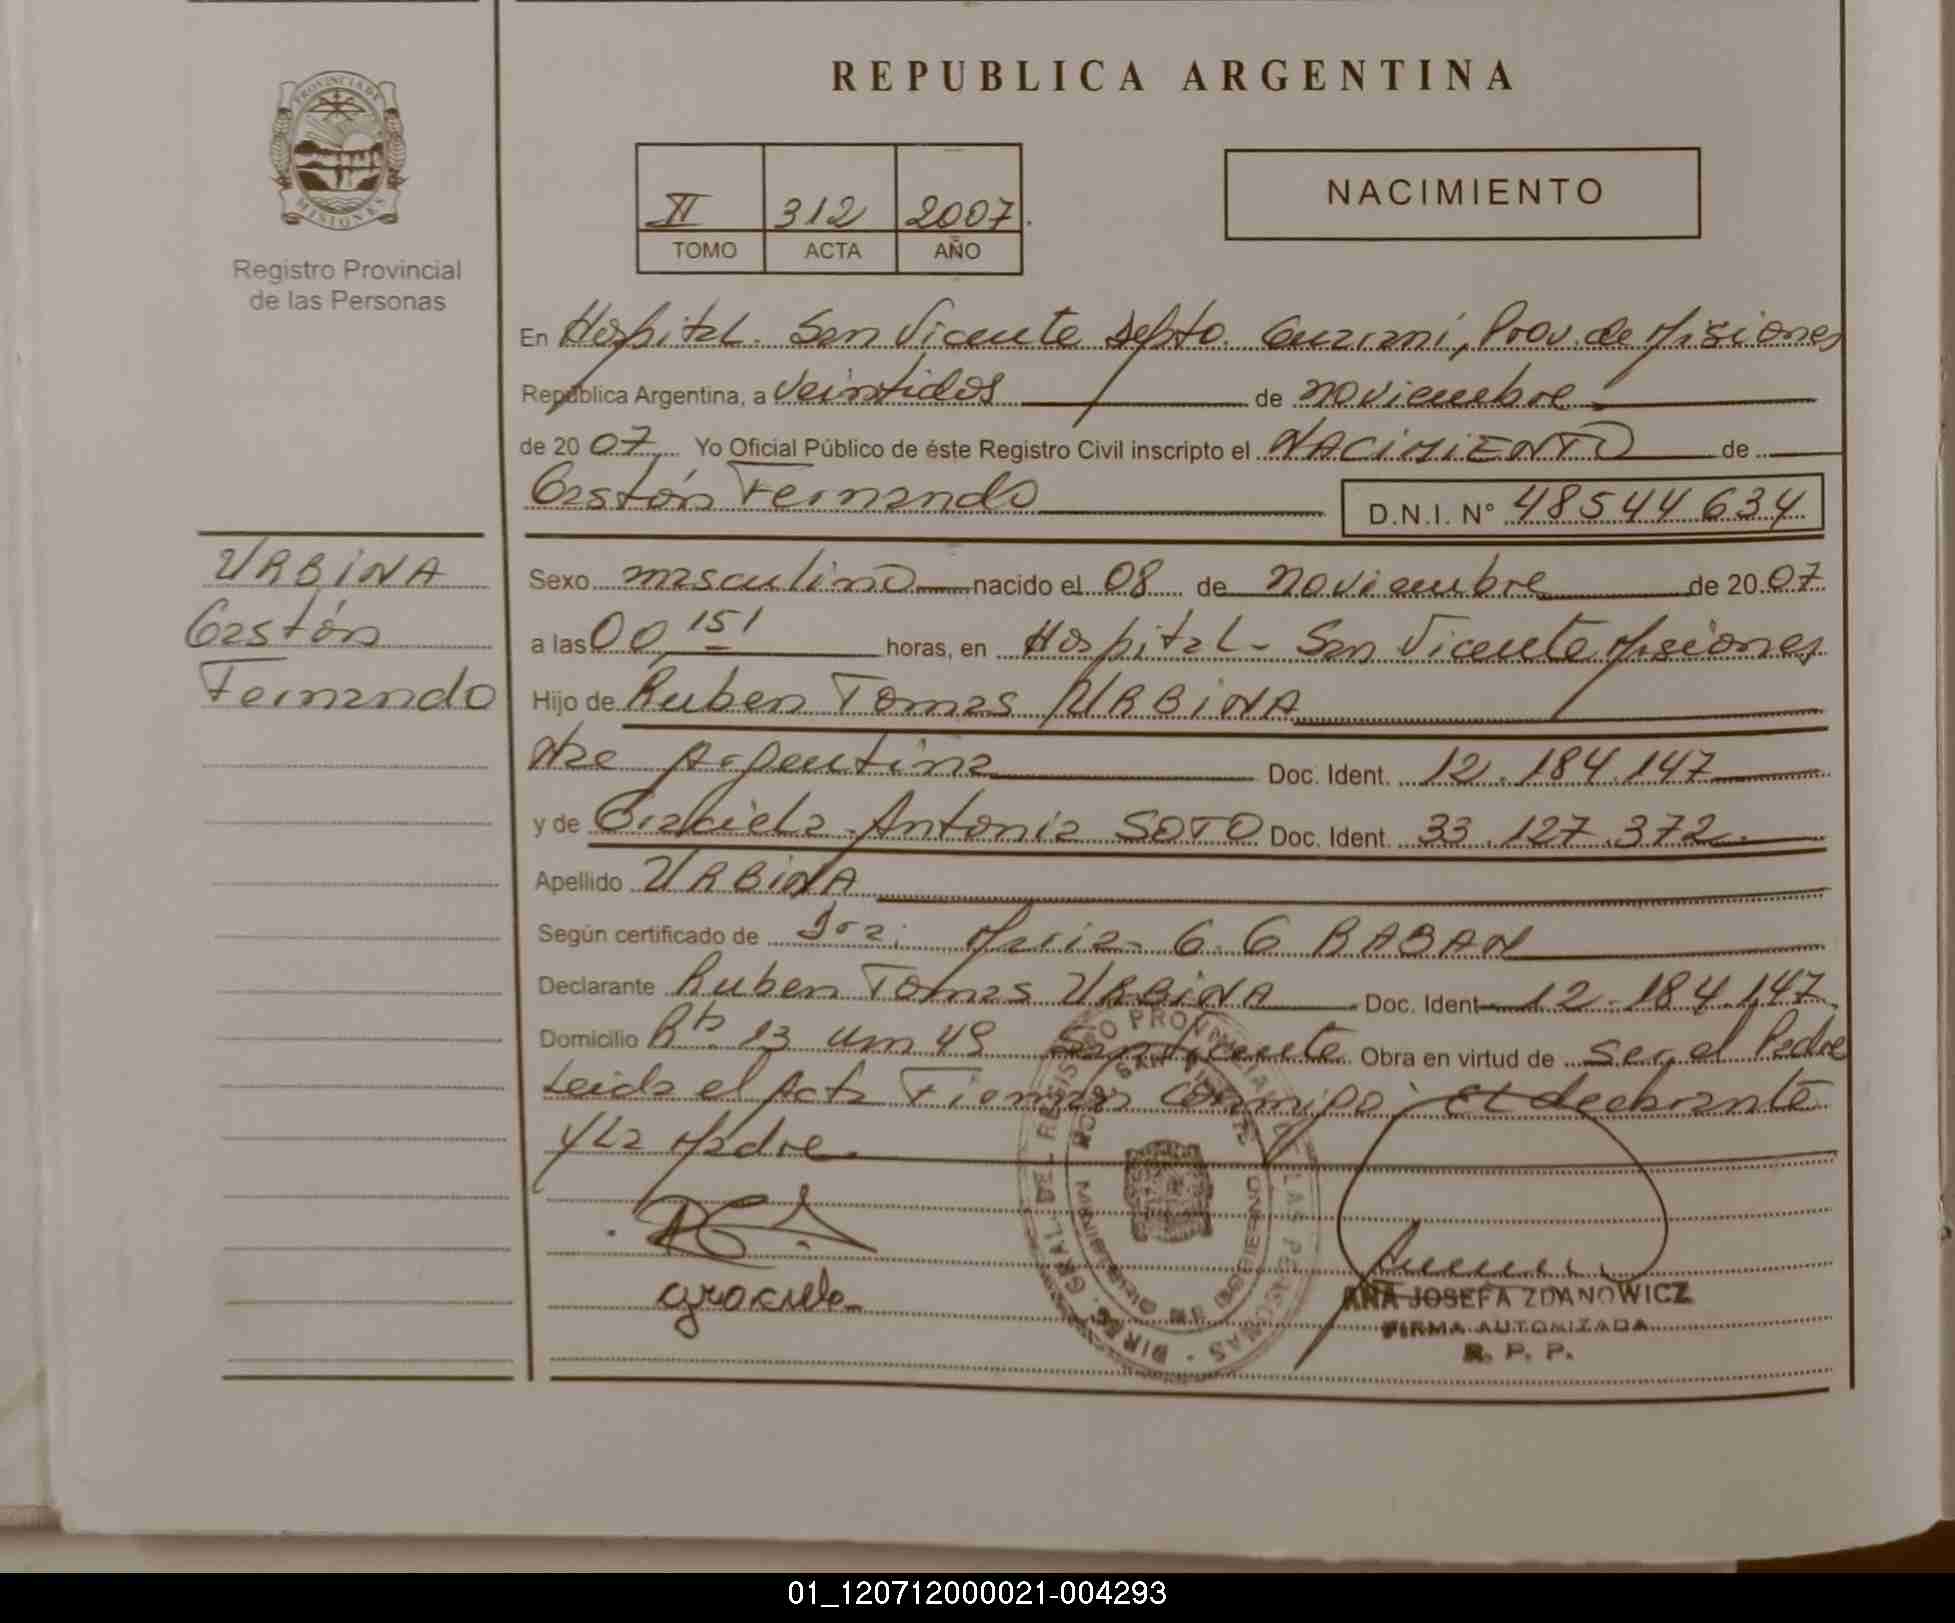 REPUBLICA ARGENTINA
PROVINCIA DE MISIONES
Registro Provincial
de las Personas
II 312 2007
TOMO ACTA AÑO
NACIMIENTO
En Hospital. San Vicente Depto. Guaraní, Prov. de Misiones
República Argentina, a veintidos de noviembre
de 20 07 Yo Oficial Público de éste Registro Civil inscripto el NACIMIENTO de
Gastón Fernando D.N.I. N° 48544634
URBINA
Gastón
Fernando
Sexo masculino nacido el 08 de noviembre de 20 07
a las 00,15' horas, en Hospital - San Vicente Misiones
Hijo de Ruben Tomas URBINA
Nac Argentina Doc. Ident. 12.184.147
y de Graciela Antonia SOTO Doc. Ident. 33.127.372
Apellido URBINA
Según certificado de Dra. Maria G. G RABAN
Declarante Ruben Tomas URBINA Doc. Ident 12.184.147
Domicilio Rta. 13 km 49 San Vicente Obra en virtud de ser el Padre
Leida el Acta Firman conmigo El declarante
y La Madre
graciela
DIREC. GRAL. DEL REGISTRO PROVINCIAL DE LAS PERSONAS
SAN VICENTE
MINISTERIO DE GOBIERNO
ANA JOSEFA ZDANOWICZ
FIRMA AUTORIZADA
R. P. P.
01_120712000021-004293